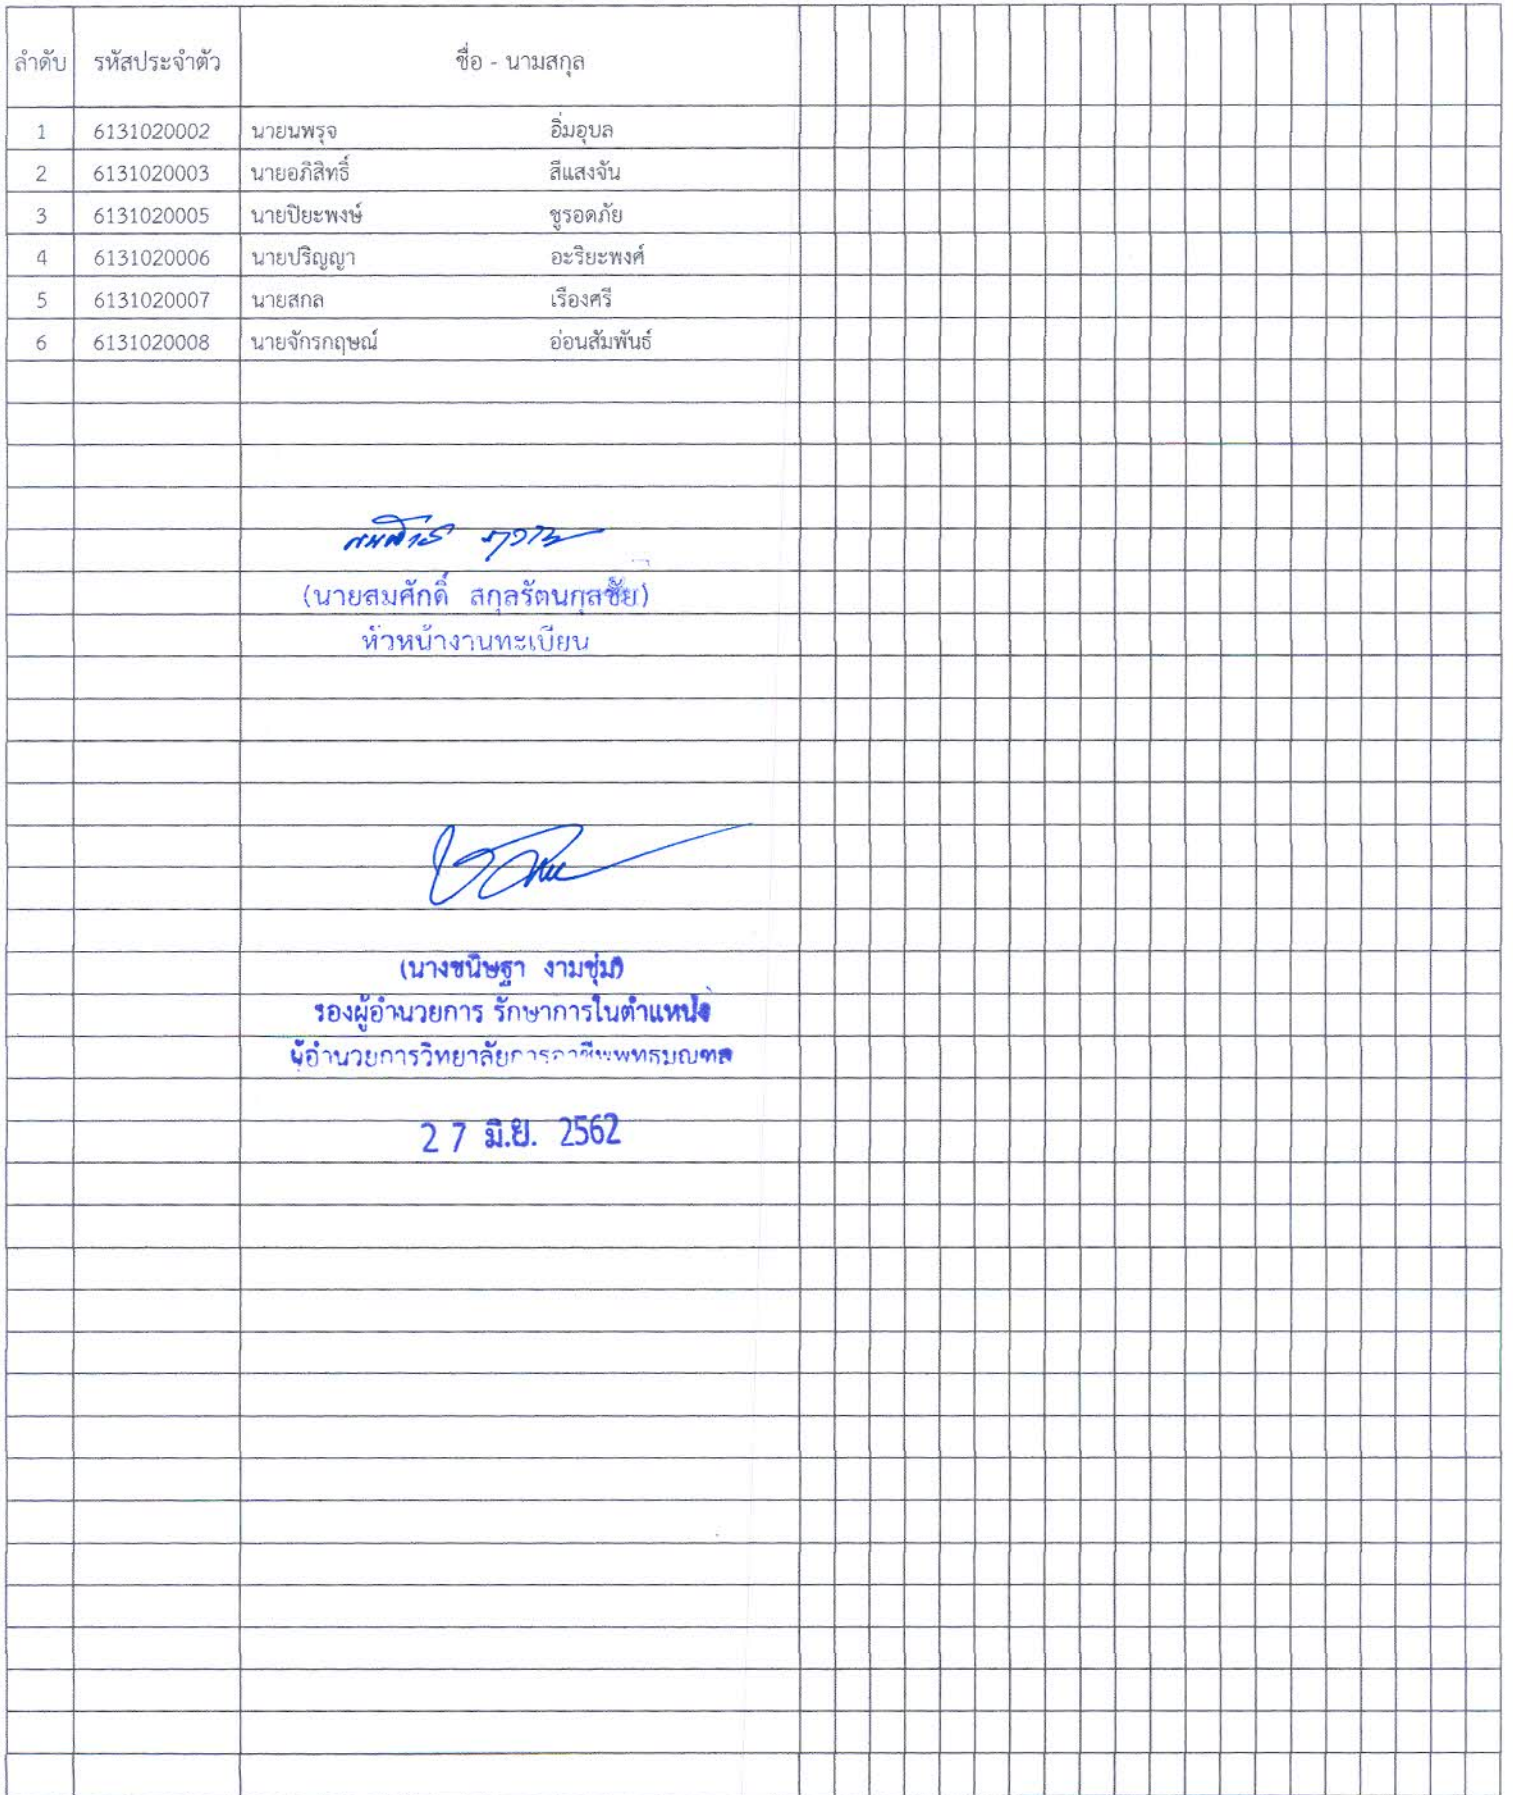 ลำดับ รหัสประจำตัว ชื่อ - นามสกุล
1 6131020002 นายนพรุจ อิ่มอุบล
2 6131020003 นายอภิสิทธิ์ สีแสงจัน
3 6131020005 นายปิยะพงษ์ ชูรอดภัย
4 6131020006 นายปริญญา อะริยะพงศ์
5 6131020007 นายสกล เรืองศรี
6 6131020008 นายจักรกฤษณ์ อ่อนสัมพันธ์
(นายสมศักดิ์ สกุลรัตนกุลชัย)
หัวหน้างานทะเบียน
(นางขนิษฐา งามชุ่ม)
รองผู้อำนวยการ รักษาการในตำแหน่ง
ผู้อำนวยการวิทยาลัยการอาชีพพุทธมณฑล
27 มิ.ย. 2562